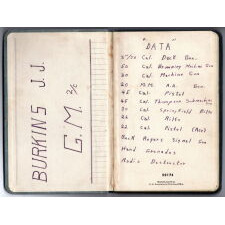 BURKINS J.J.
G.M. 3/c
"DATA"
5"/38 Cal. Deck Gun
50 Cal. Browning Machine Gun
30 Cal. Machine Gun
20 M.M. A.A. Gun
45 Cal. Pistol
45 Cal. Thompson Submachine Gun
30 Cal. Springfield Rifle
22 Cal. Rifle
22 Cal. Pistol (Ace)
Buck Rogers Signal Gun
Hand Grenades
Radio Destructor